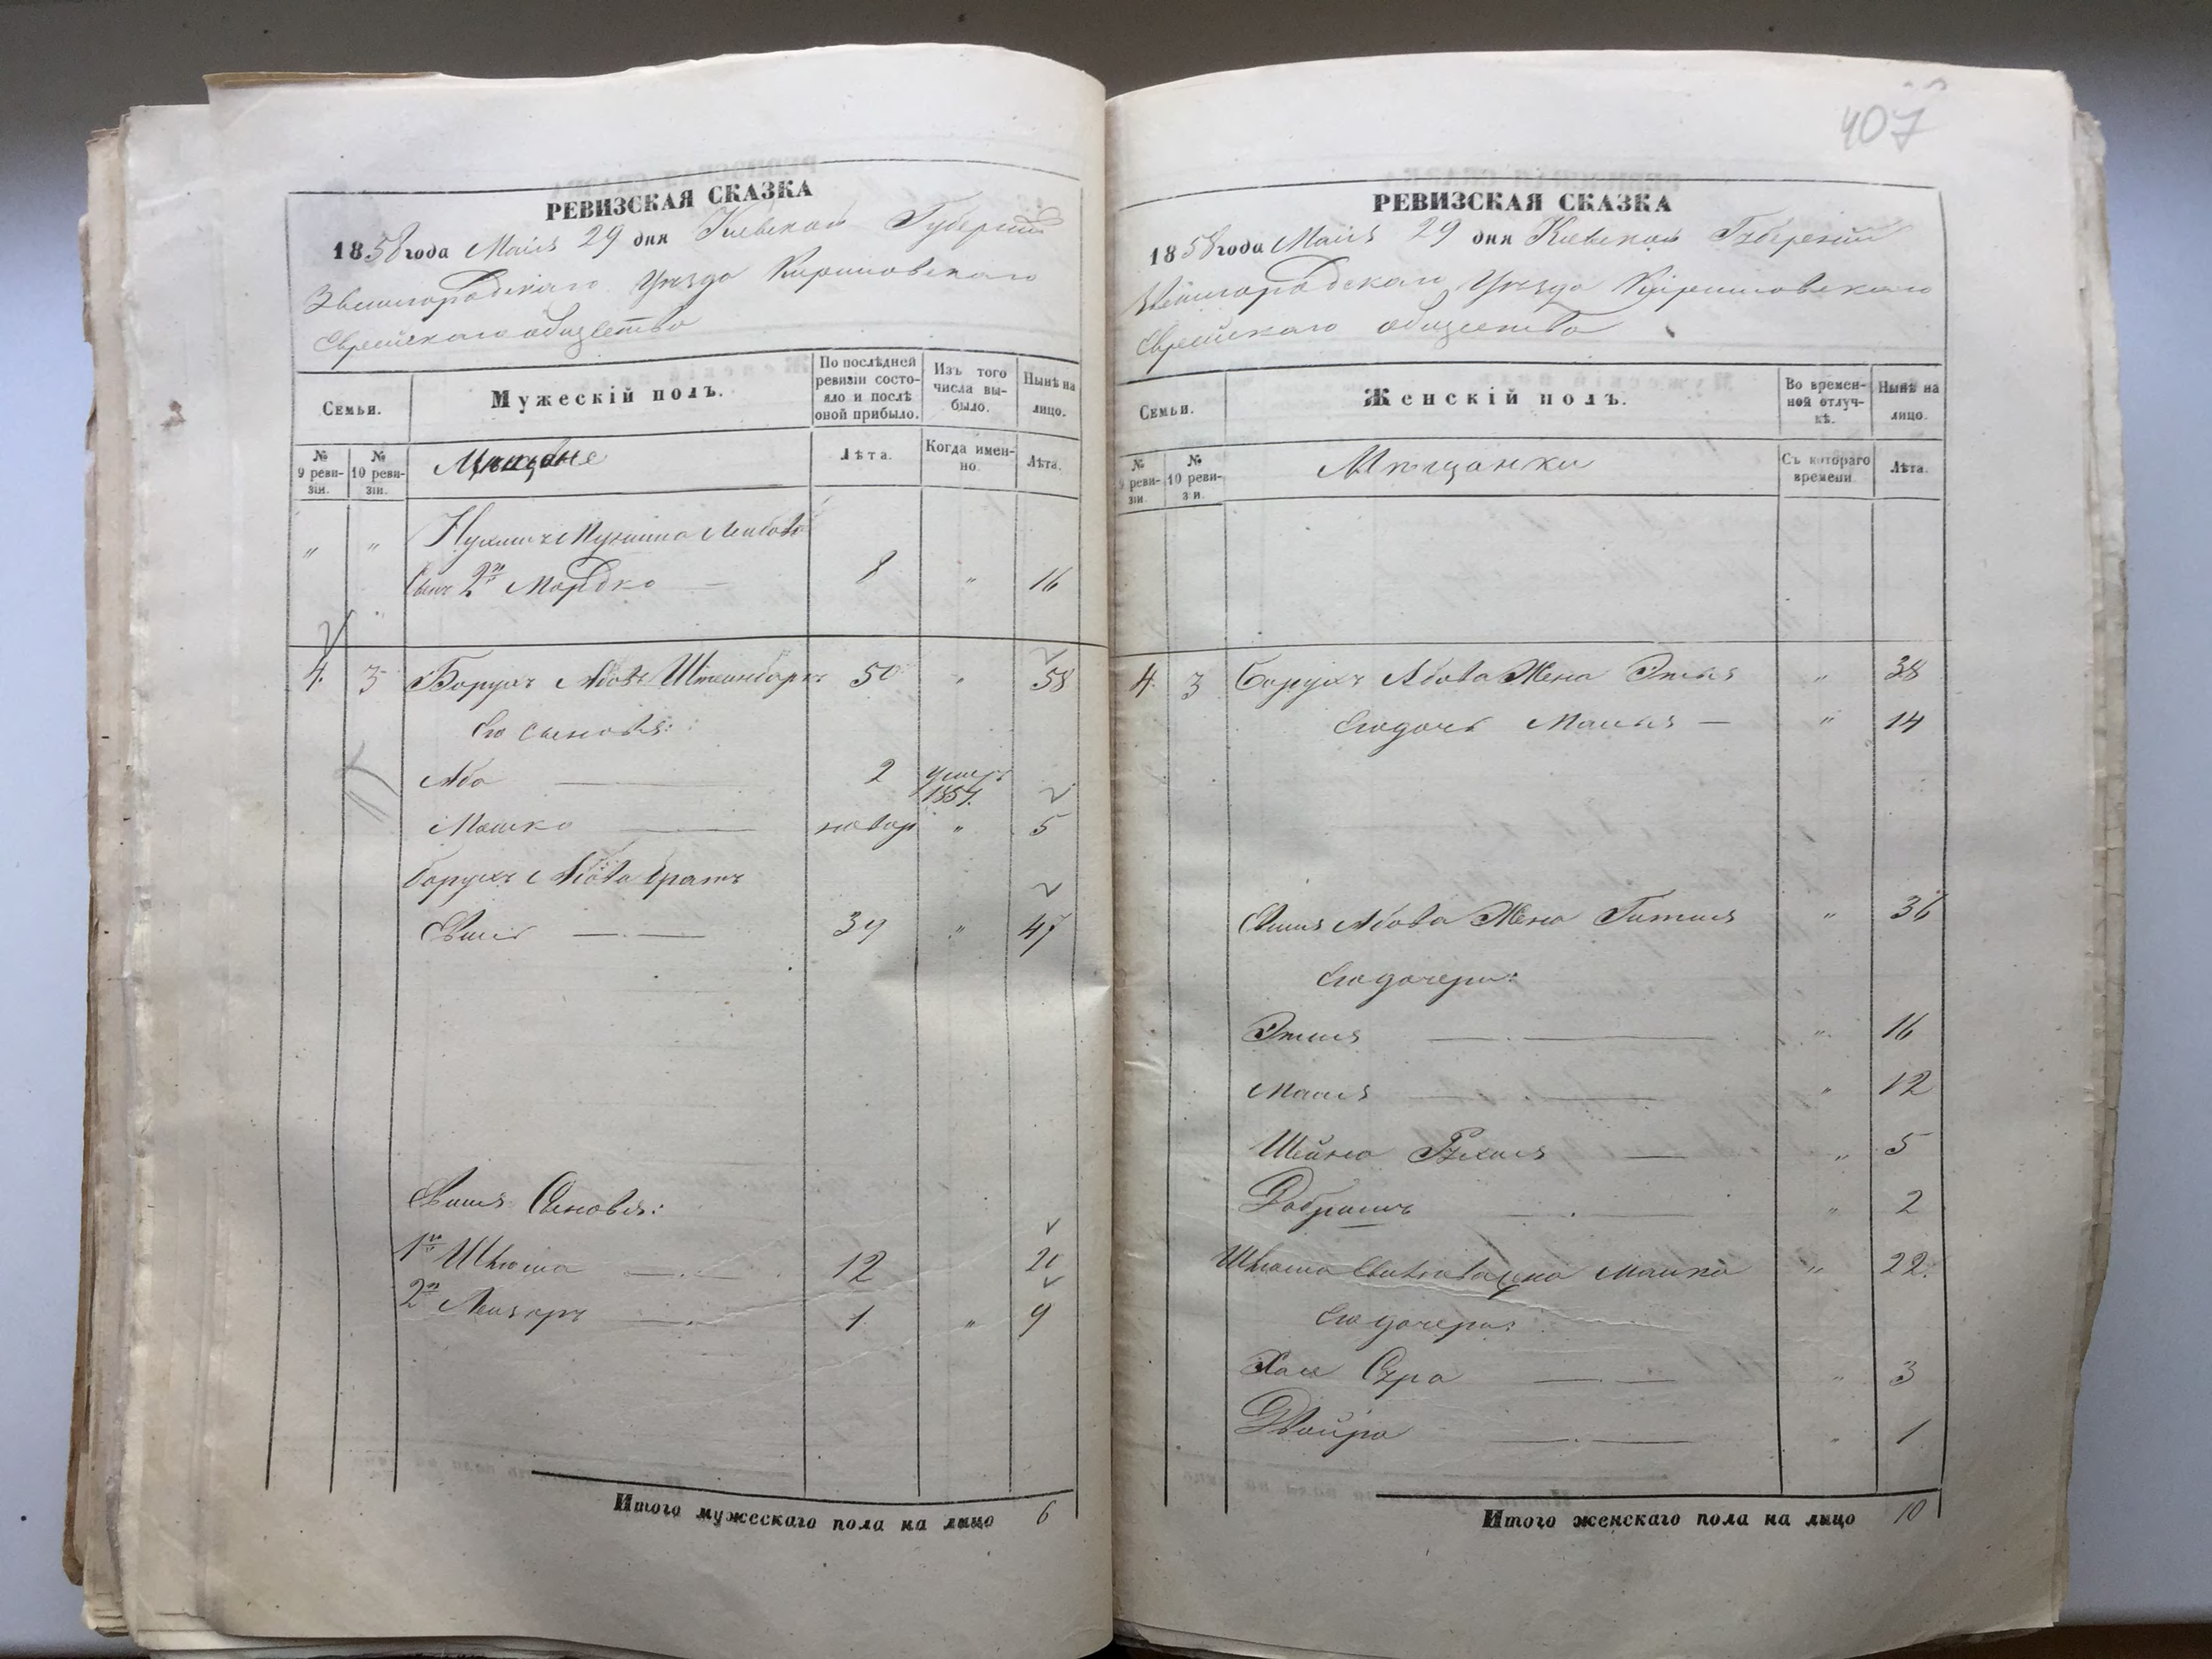 407
РЕВИЗСКАЯ СКАЗКА
1858 года Маія 29 дня Кіевской Губерніи
Звенигородскаго Уѣзда
Еврейскаго общества
Семьи.
Мужескій полъ.
По послѣдней ревизіи состояло и послѣ оной прибыло.
Изъ того числа выбыло.
Нынѣ на лицо.
№ 9 ревизіи.
№ 10 ревизіи.
Мѣщане
Лѣта.
Когда именно.
Лѣта.
" "
Сынъ 2й Мордко — 8 " 16
4 3 Борухъ Абовъ Штейнбаркъ 50 " 58
Его сыновья:
Аба — 2 умеръ 1857.
Мошко — новор " 5
Борухъ Абова братъ
Евшія — 39 " 47
Евшія Сыновья:
1й Шлиома — 12 20
2й Лейзоръ — 1 " 9
Итого мужескаго пола на лицо 6
РЕВИЗСКАЯ СКАЗКА
1858 года Маія 29 дня Кіевской Губерніи
Звенигородскаго Уѣзда
Еврейскаго общества
Семьи.
Женскій полъ.
Во временной отлучкѣ.
Нынѣ на лицо.
№ 9 ревизіи.
№ 10 ревизіи.
Мѣщанки
Съ котораго времени.
Лѣта.
4. 3 Борухъ Абова Жена Этля " 38
Его дочь Маля — " 14
Абова Жена Гитля " 36
Его дочери:
Этля — " 16
Маля — " 12
Шейна Рухля — " 5
Добрышъ — " 2
жена Малка " 22.
Его дочери:
Хая Сура — " 3
Двойра — " 1
Итого женскаго пола на лицо 10